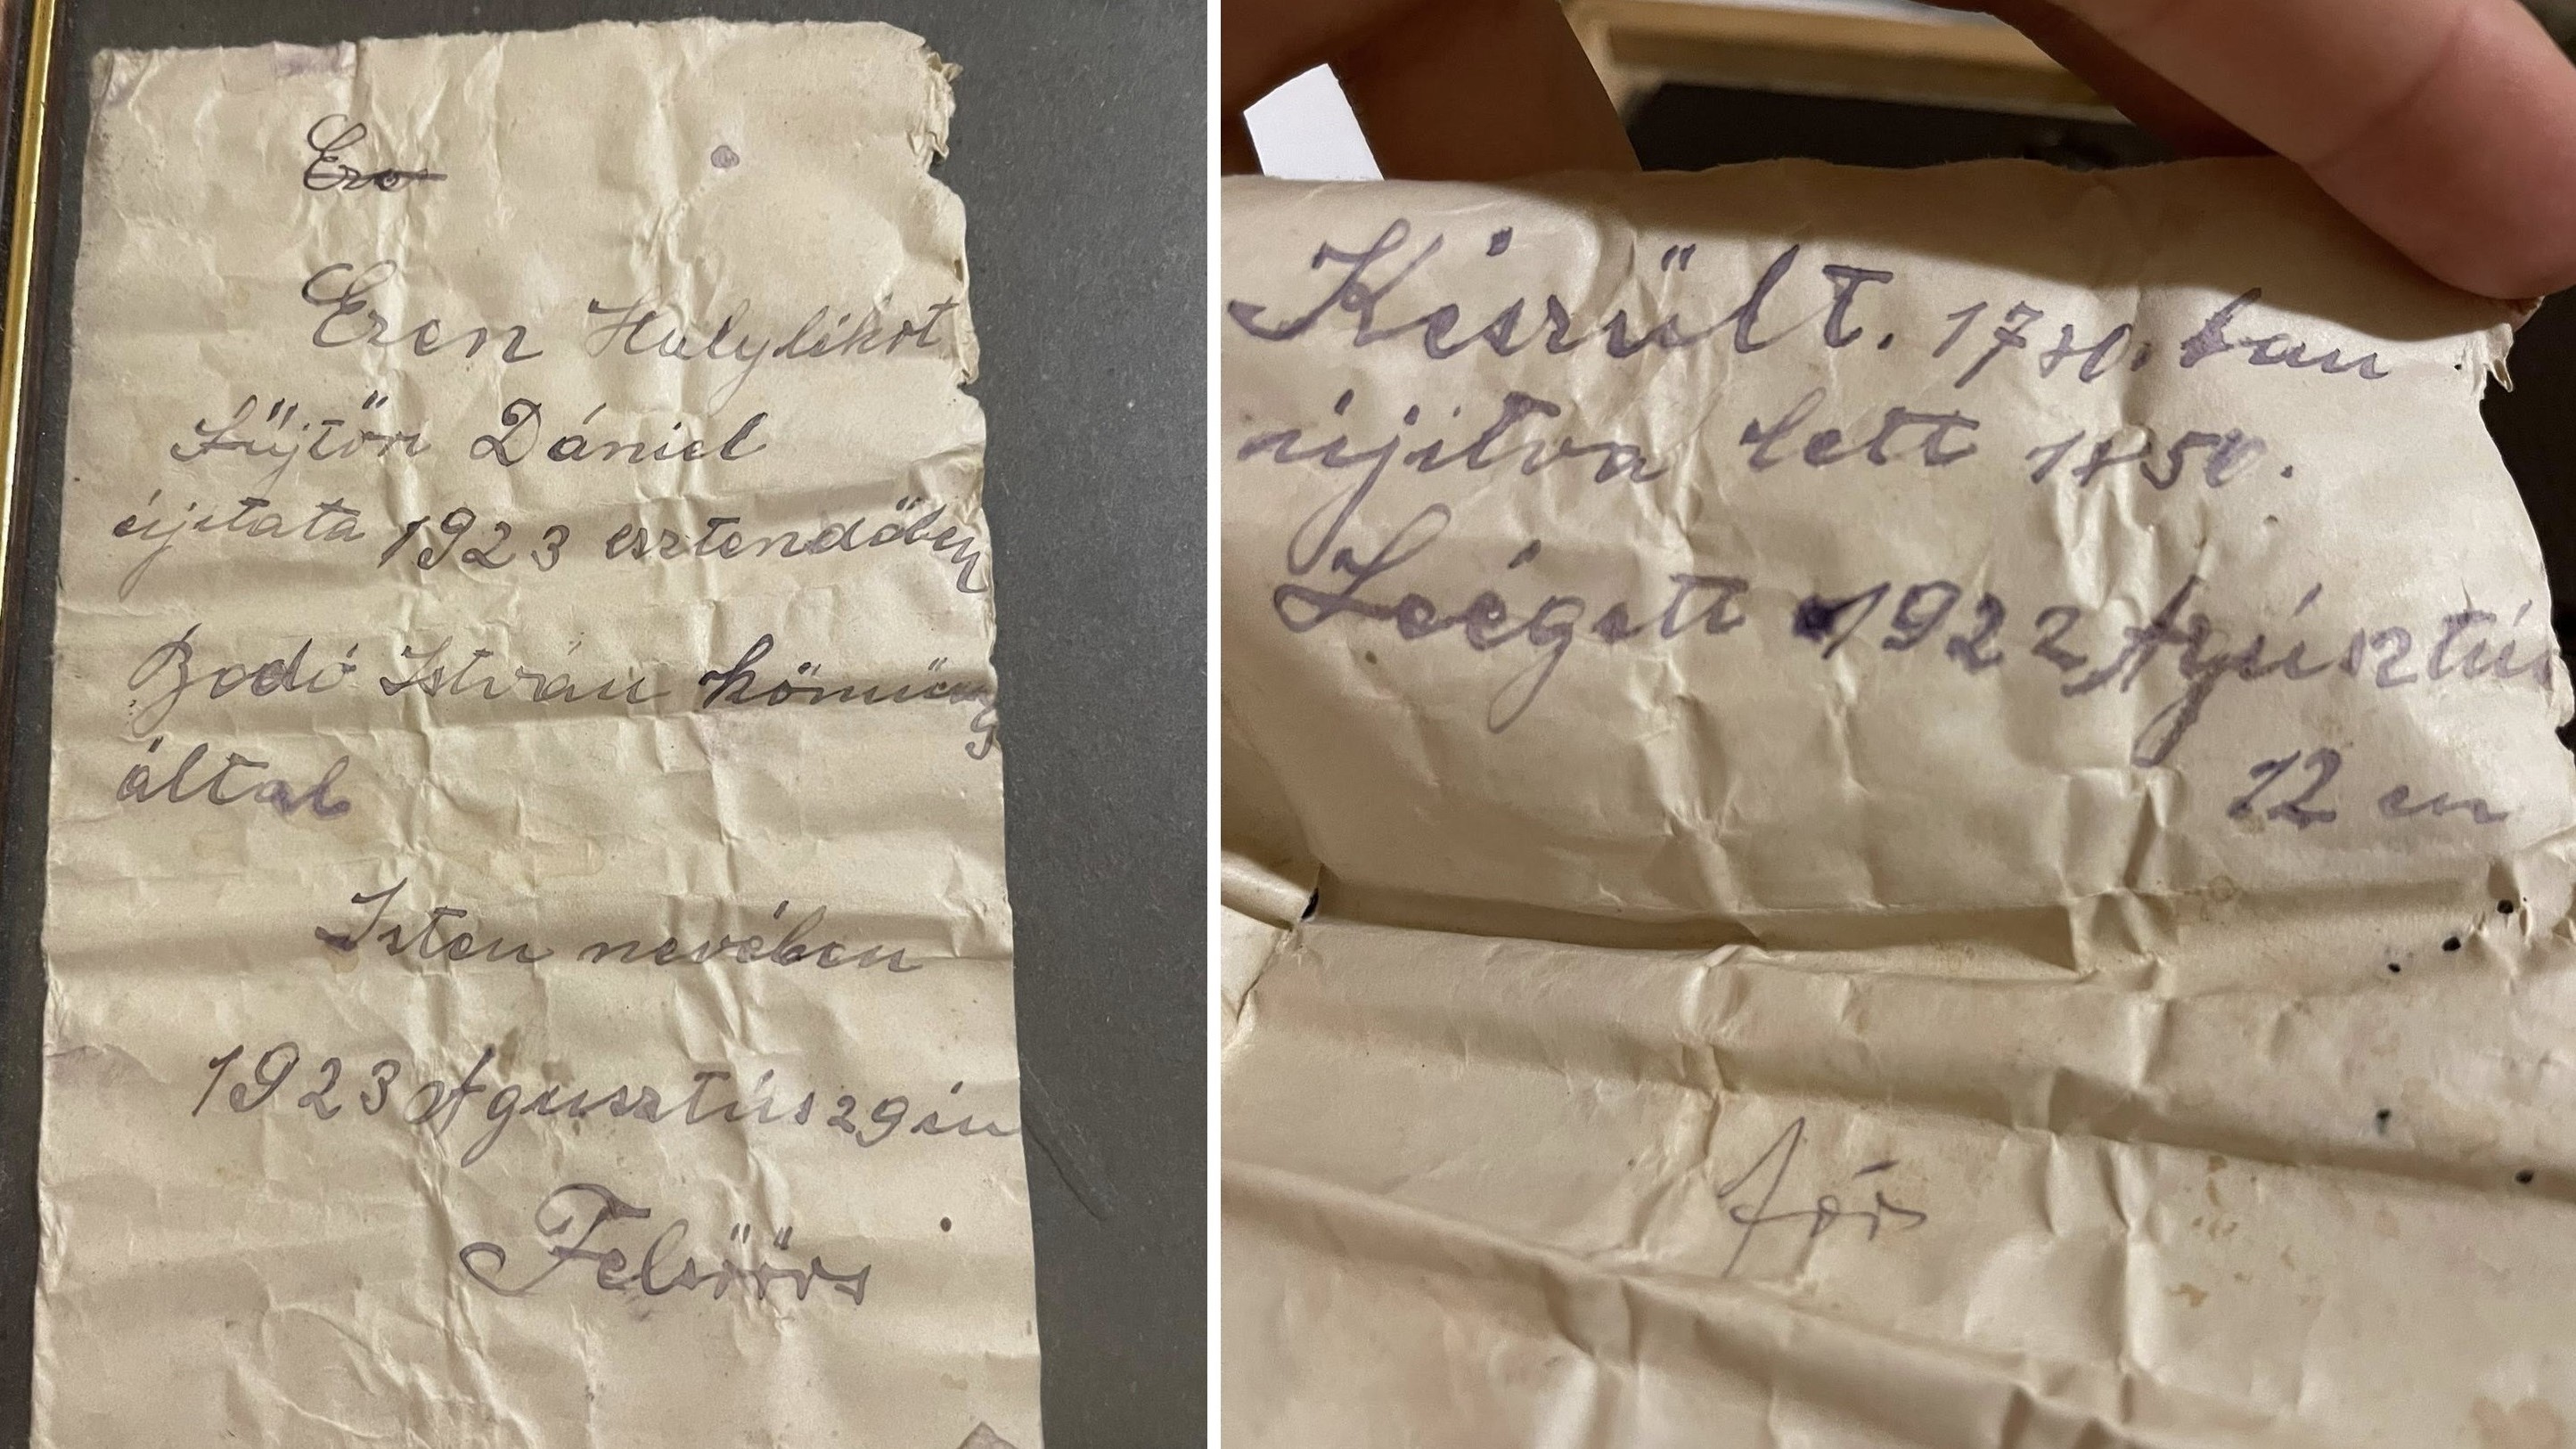 Ezen Halylékot
Süjtör Dániel
újitata 1923 esztendőben
Bodó István kőműves
által
Isten nevében
1923 Agusztús 29 én
Felsöörs
Készült. 17 ban
újitva lett 1850.
Leégett 1922 Agúsztús
12 en